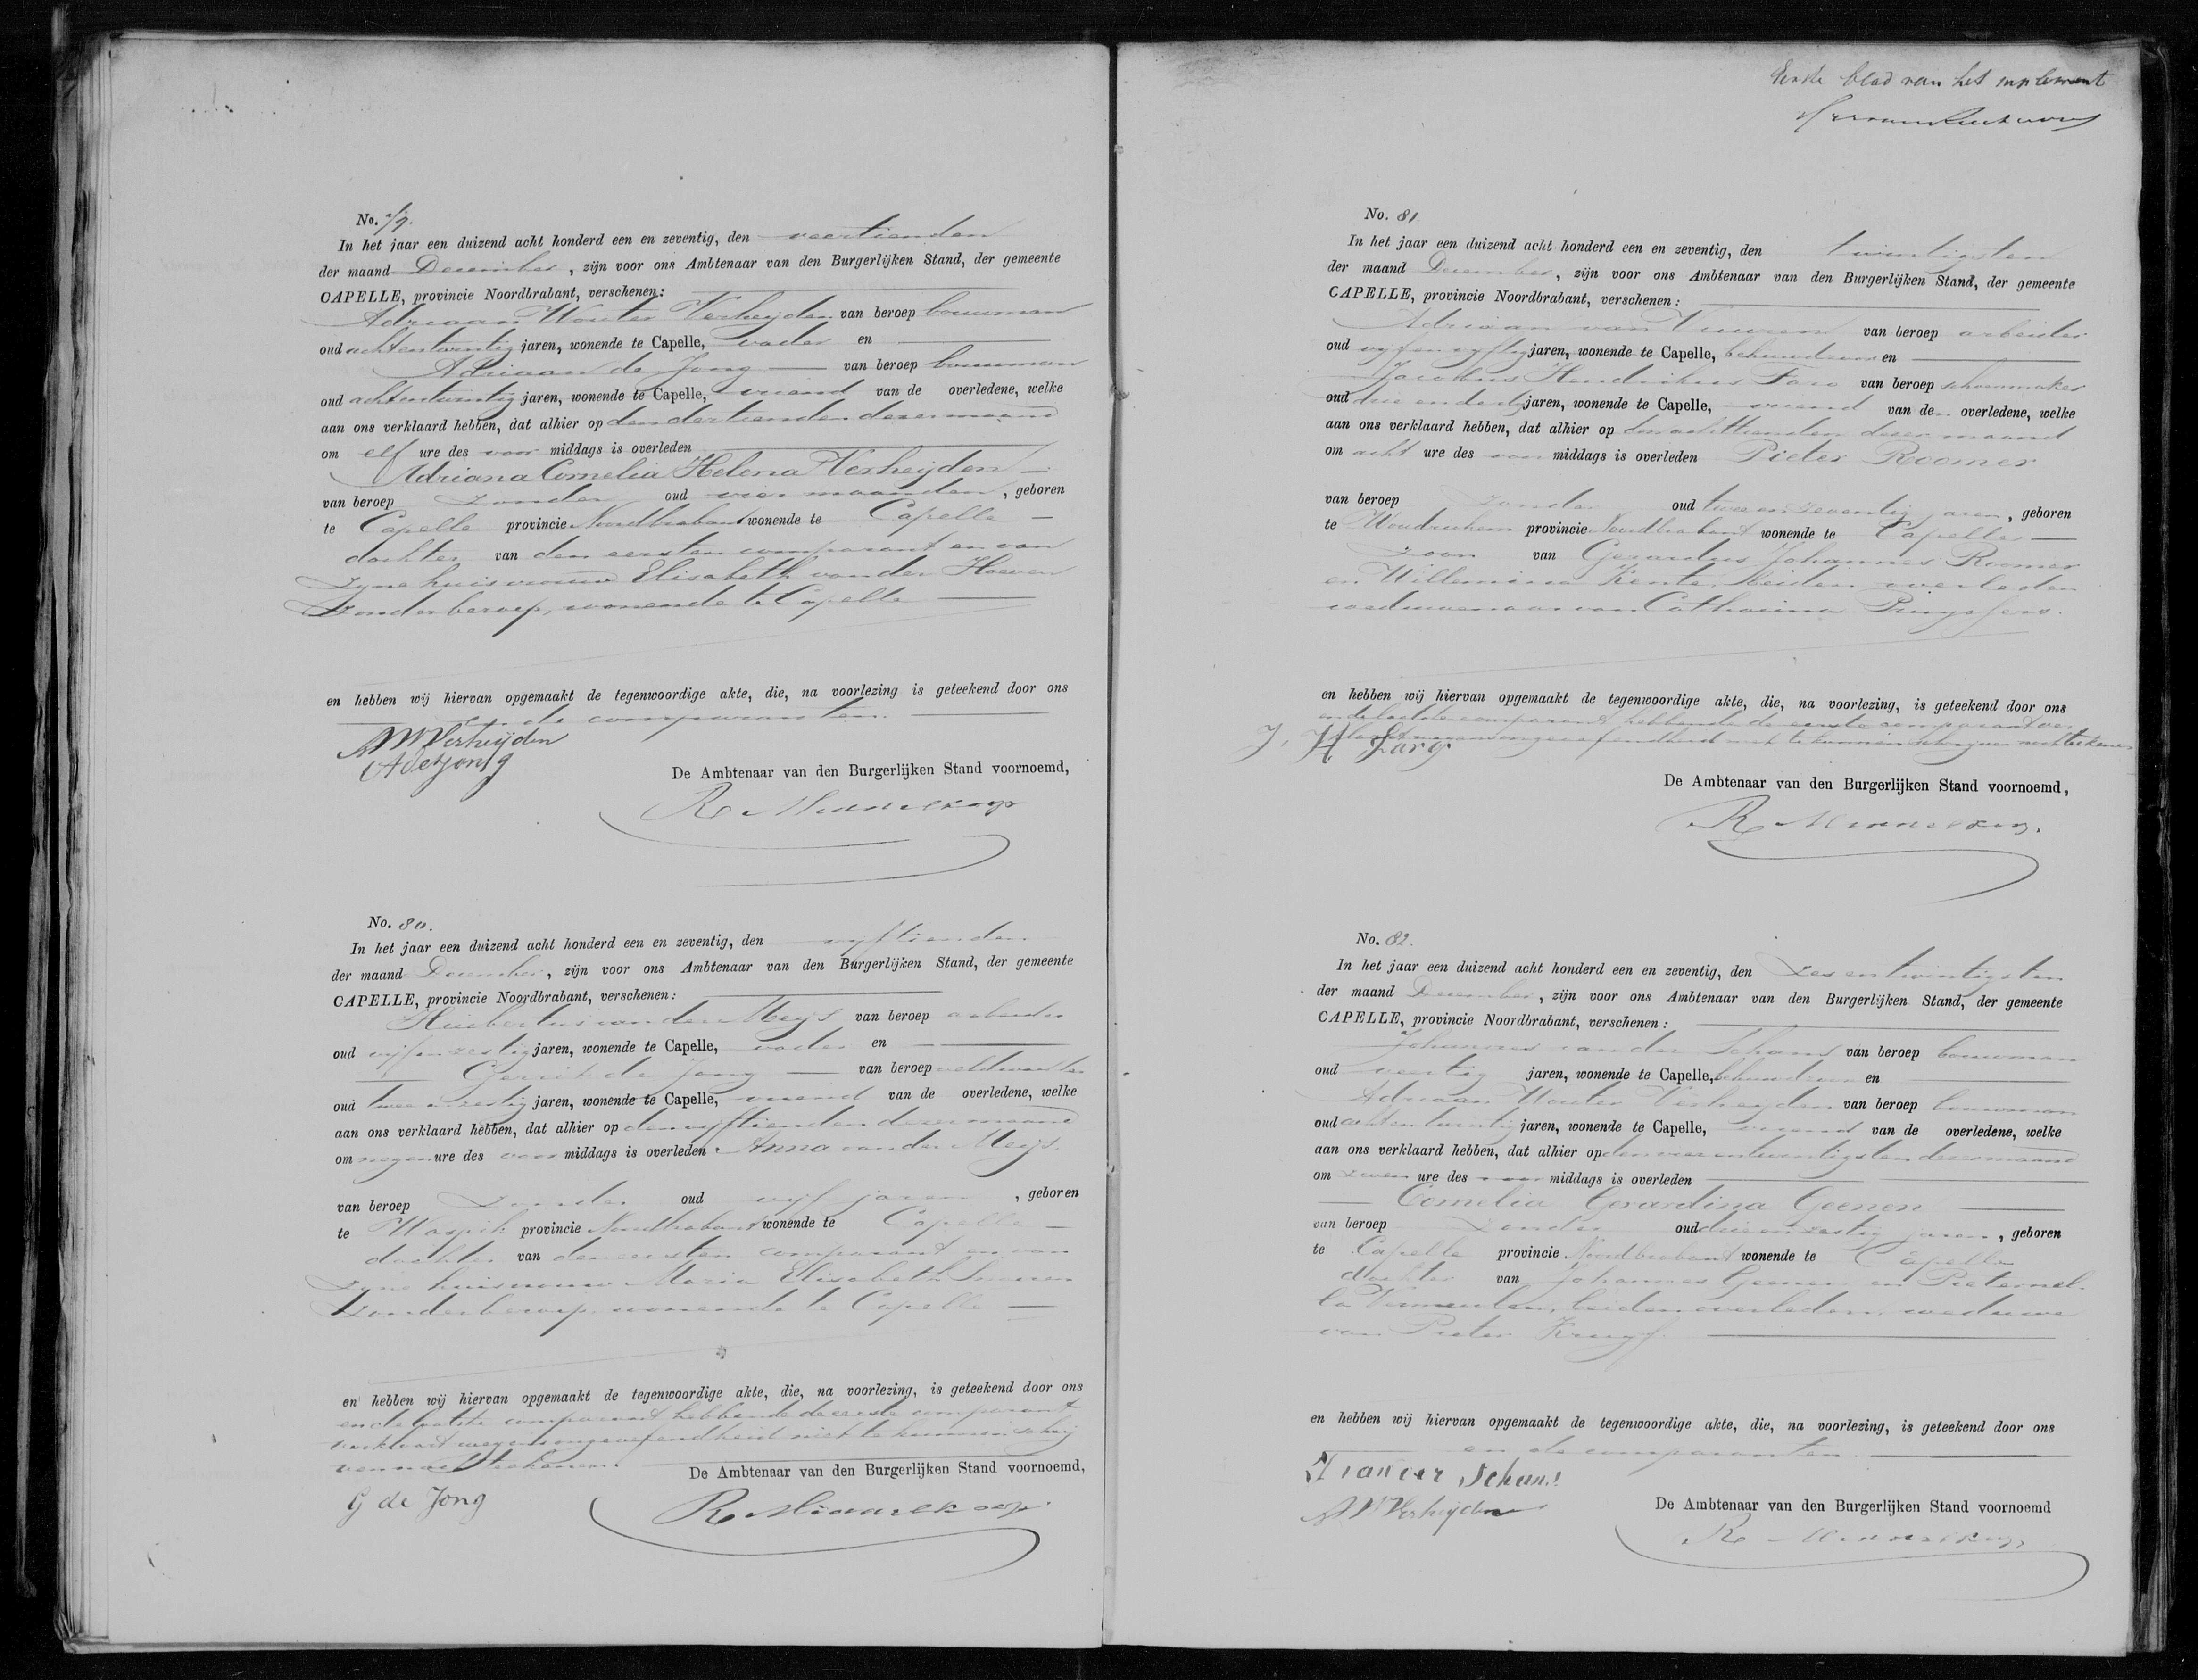 No. 79.
In het jaar een duizend acht honderd een en zeventig, den veertienden
der maand December, zijn voor ons Ambtenaar van den Burgerlijken Stand, der gemeente
CAPELLE, provincie Noordbrabant, verschenen:
Adriaan Wouter Verheijden van beroep bouwman
oud achtentwintig jaren, wonende te Capelle, vader en
Adriaan de Jong van beroep bouwman
oud achtentwintig jaren, wonende te Capelle, vriend van de overledene, welke
aan ons verklaard hebben, dat alhier op den dertienden dezer maand
om elf ure des voor middags is overleden
Adriana Cornelia Helena Verheijden
van beroep zonder oud vier maanden, geboren
te Capelle provincie Noordbrabant wonende te Capelle
dochter van den eersten comparant en van
zyne huisvrouw Elisabeth van der Hoeven
zonder beroep, wonende te Capelle
en hebben wij hiervan opgemaakt de tegenwoordige akte, die, na voorlezing is geteekend door ons
en de comparanten.
AW Verheijden
A de Jong
De Ambtenaar van den Burgerlijken Stand voornoemd,
R
No. 80.
In het jaar een duizend acht honderd een en zeventig, den vyftienden
der maand December, zijn voor ons Ambtenaar van den Burgerlijken Stand, der gemeente
CAPELLE, provincie Noordbrabant, verschenen:
Huibertus van der Meijs van beroep arbeider
oud vyfenzestig jaren, wonende te Capelle, vader en
Gerrit de Jong van beroep veldwachter
oud twee en zestig jaren, wonende te Capelle, vriend van de overledene, welke
aan ons verklaard hebben, dat alhier op den vyftienden dezer maand
om negen ure des voor middags is overleden Anna van der Meijs.
van beroep zonder oud vyf jaren, geboren
te Waspik provincie Noordbrabant wonende te Capelle
dochter van den eersten comparant en van
zyne huisvrouw Maria Elisabeth
zonder beroep, wonende te Capelle
en hebben wij hiervan opgemaakt de tegenwoordige akte, die, na voorlezing, is geteekend door ons
en de laatste comparant hebbende de eerste comparant
verklaart wegens ongeoefendheid niet te kunnen schrij
ven noch teekenen.
De Ambtenaar van den Burgerlijken Stand voornoemd,
G de Jong
R
Eerste blad van het suplement
No. 81
In het jaar een duizend acht honderd een en zeventig, den twintigsten
der maand December, zijn voor ons Ambtenaar van den Burgerlijken Stand, der gemeente
CAPELLE, provincie Noordbrabant, verschenen:
Adriaan van Vuuren van beroep arbeider
oud vyfenvyftig jaren, wonende te Capelle, behuwdzoon en
Jacobus Hendrikus Faro van beroep schoenmaker
oud drie en dertig jaren, wonende te Capelle, vriend van den overledene, welke
aan ons verklaard hebben, dat alhier op den achttienden dezer maand
om acht ure des voor middags is overleden Pieter Roomer
van beroep zonder oud twee en zeventig jaren, geboren
te Woudrichem provincie Noordbrabant wonende te Capelle
zoon van Gerardus Johannes Roomer
en Willemina Kente, beiden overleden
weduwenaar van Catharina
en hebben wij hiervan opgemaakt de tegenwoordige akte, die, na voorlezing, is geteekend door ons
en de laatste comparant hebbende de eerste comparant ver
klaart wegens ongeoefendheid niet te kunnen schryven noch teekenen
J. H Farg
De Ambtenaar van den Burgerlijken Stand voornoemd,
R
No. 82.
In het jaar een duizend acht honderd een en zeventig, den zesentwintigsten
der maand December, zijn voor ons Ambtenaar van den Burgerlijken Stand, der gemeente
CAPELLE, provincie Noordbrabant, verschenen:
Johannes van der Schans van beroep bouwman
oud veertig jaren, wonende te Capelle, behuwdzoon en
Adriaan Wouter Verheijden van beroep bouwman
oud achtentwintig jaren, wonende te Capelle, vriend van de overledene, welke
aan ons verklaard hebben, dat alhier op den vierentwintigsten dezer maand
om zeven ure des voor middags is overleden
Cornelia Gerardina Geenen
van beroep zonder oud drie en zestig jaren, geboren
te Capelle provincie Noordbrabant wonende te Capelle
dochter van Johannes Geenen en Pieternel-
la Vermeulen, beiden overleden, weduwe
van Pieter
en hebben wij hiervan opgemaakt de tegenwoordige akte, die, na voorlezing, is geteekend door ons
en de comparanten
J van der Schans
AW Verheijden
De Ambtenaar van den Burgerlijken Stand voornoemd
R